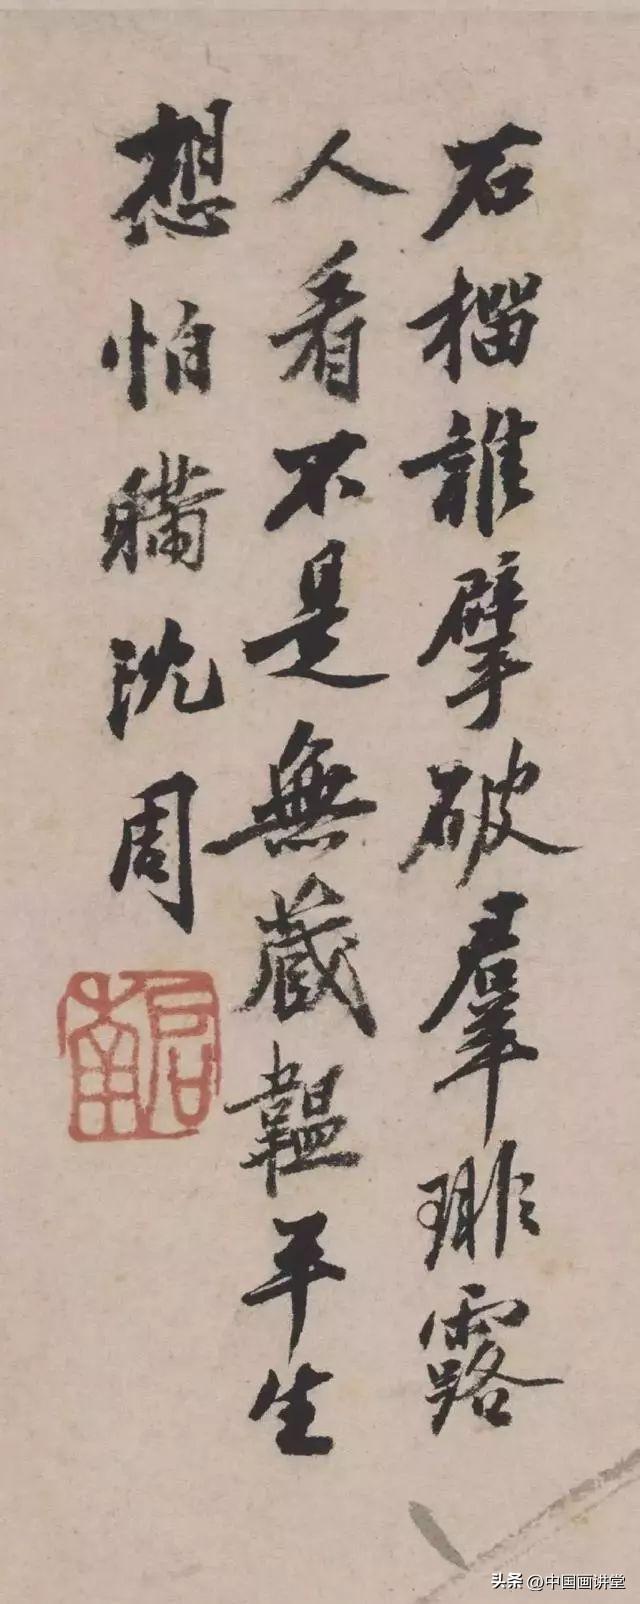 石榴誰擘破羣琲露
人看不是無藏韞平生
想怕瞞沈周
启南
头条 @中国画讲堂